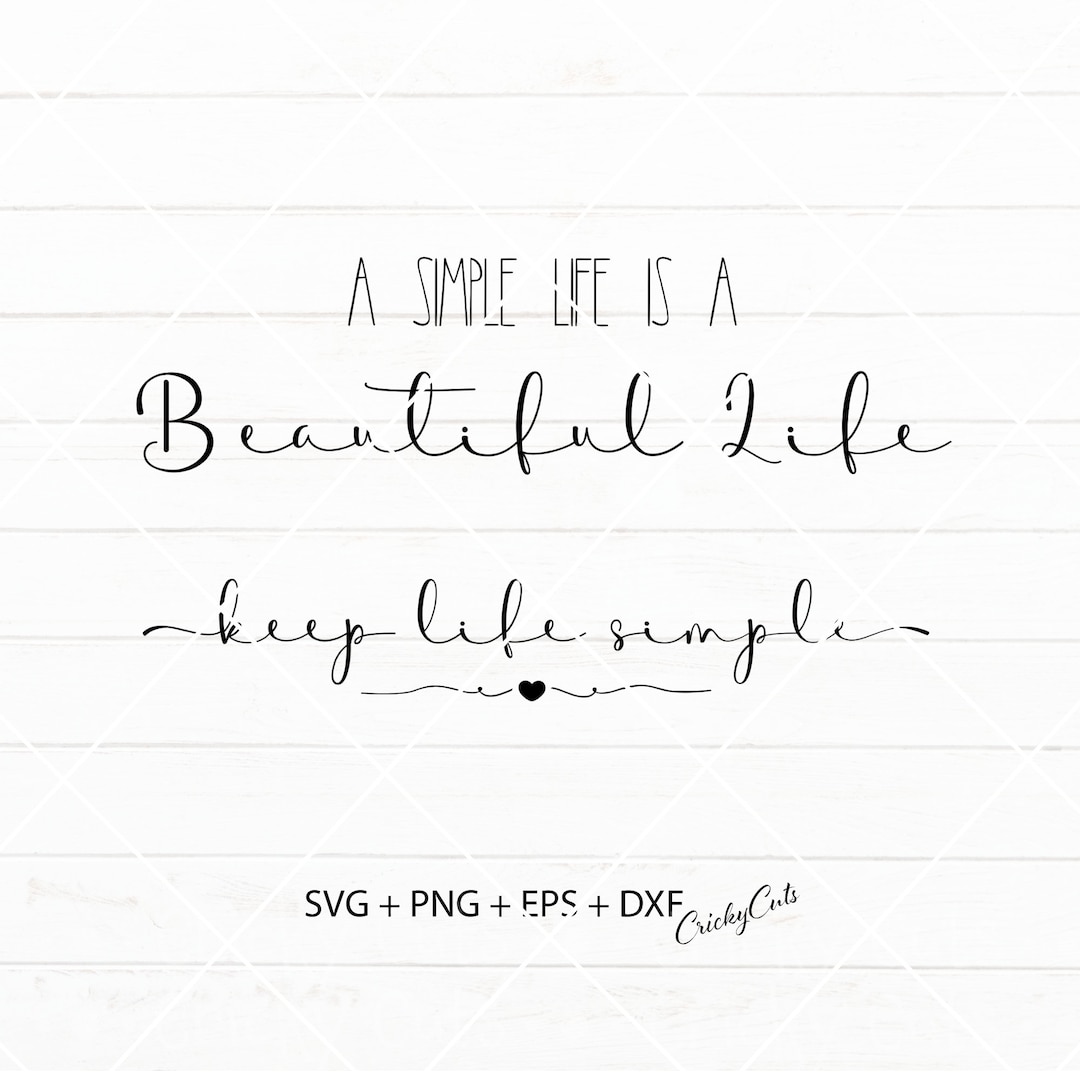 A SIMPLE LIFE IS A
Beautiful Life
keep life simple
SVG + PNG + EPS + DXF
CrickyCuts